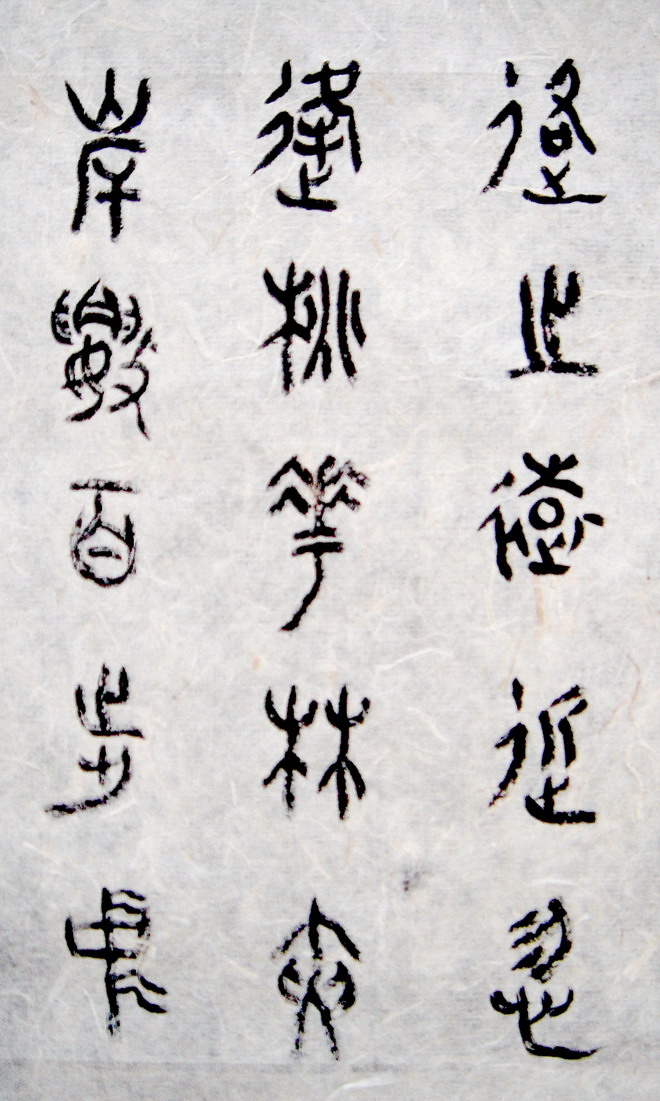 路之遠近忽
逢桃華林夾
岸數百步中